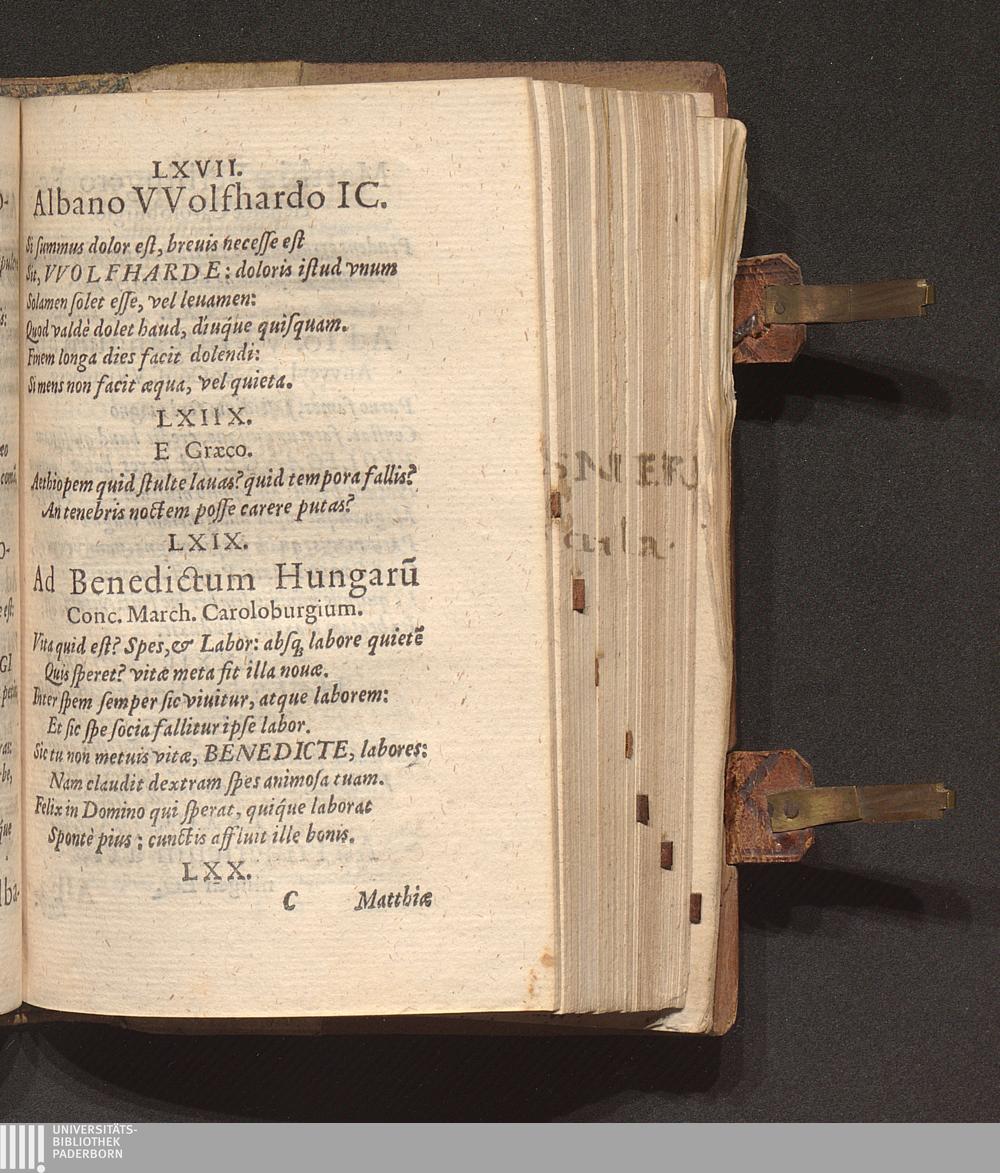 LXVII.
Albano VVolfhardo IC.
Si ſummus dolor eſt, breuis neceſſe eſt
Sit, VVOLFHARDE: doloris iſtud vnum
Solamen ſolet eſſe, vel leuamen:
Quod valdè dolet haud, diuq́ue quiſquam.
Finem longa dies facit dolendi:
Si mens non facit æqua, vel quieta.
LXIIX.
E Græco.
Aethiopem quid ſtulte lauas? quid tempora fallis?
An tenebris noctem poſſe carere putas?
LXIX.
Ad Benedictum Hungarū
Conc. March. Caroloburgium.
Vita quid eſt? Spes, & Labor: abſq; labore quietē
Quis ſperet? vitæ meta fit illa nouæ.
Inter ſpem ſemper ſic viuitur, atque laborem:
Et ſic ſpe ſocia fallitur ipſe labor.
Sic tu non metuis vitæ, BENEDICTE, labores:
Nam claudit dextram ſpes animoſa tuam.
Felix in Domino qui ſperat, quiq́ue laborat
Spontè pius; cunctis affluit ille bonis.
LXX.
C Matthiæ
UNIVERSITÄTS-
BIBLIOTHEK
PADERBORN